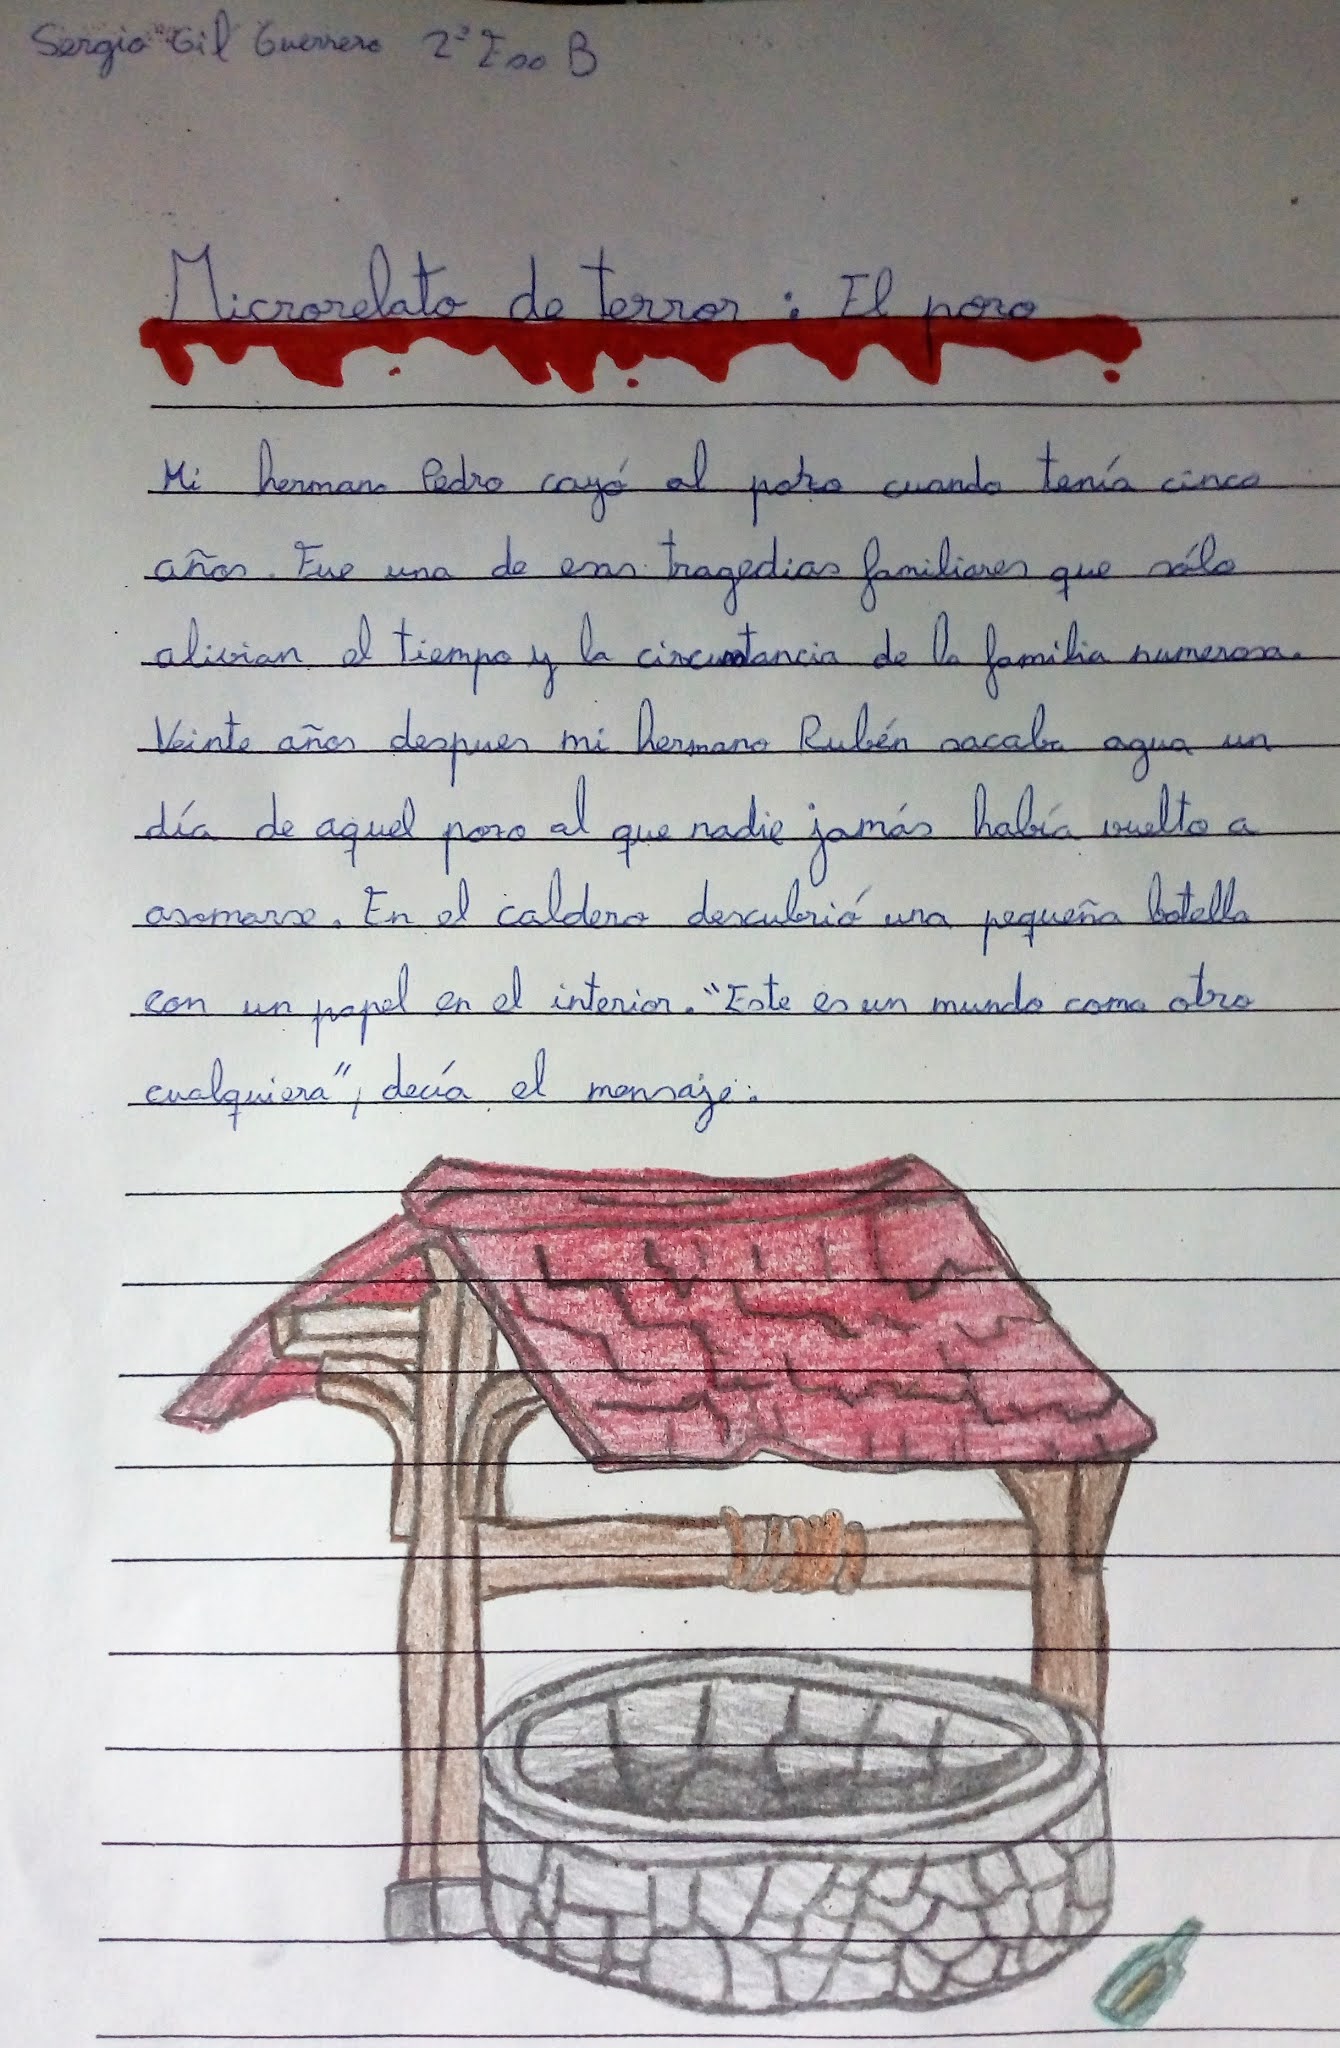 Sergio Gil Guerrero 2º Eso B
Microrelato de terror: El pozo
Mi hermano Pedro cayó al pozo cuando tenía cinco
años. Fue una de esas tragedias familiares que sólo
alivian el tiempo y la circunstancia de la familia numerosa.
Veinte años despues mi hermano Rubén sacaba agua un
día de aquel pozo al que nadie jamás había vuelto a
asomarse. En el caldero descubrió una pequeña botella
con un papel en el interior. "Este es un mundo como otro
cualquiera", decía el mensaje.